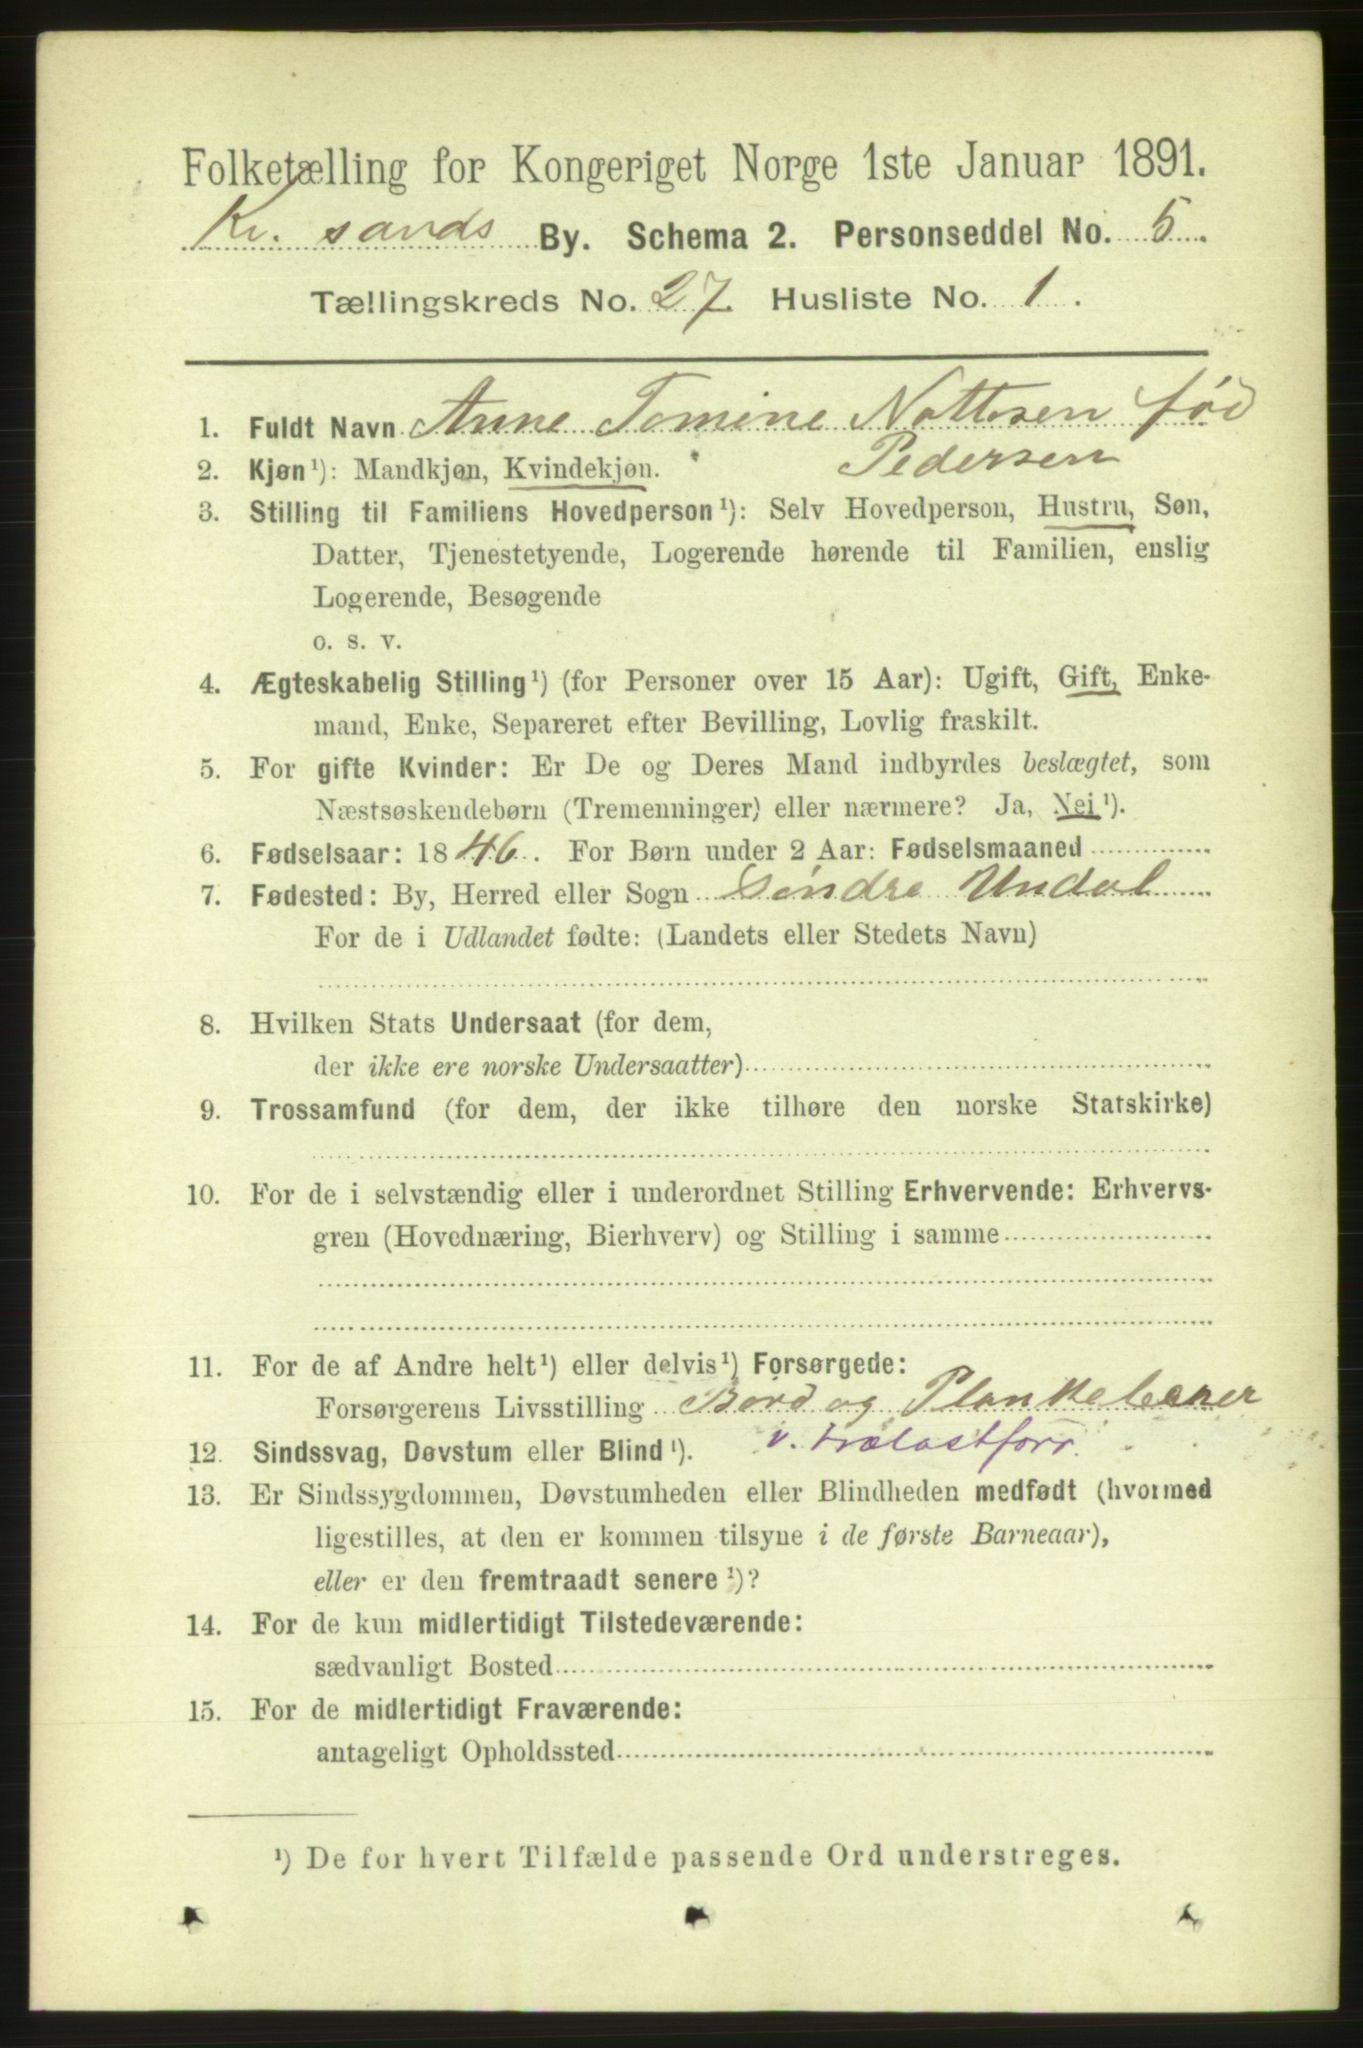 Folketælling for Kongeriget Norge 1ste Januar 1891.
Kr. sands By. Schema 2. Personseddel No. 5.
Tællingskreds No. 27. Husliste No. 1.
1. Fuldt Navn Anne Tomine Nottosen fød
Pedersen
2. Kjøn¹): Mandkjøn, Kvindekjøn.
3. Stilling til Familiens Hovedperson¹): Selv Hovedperson, Hustru, Søn,
Datter, Tjenestetyende, Logerende hørende til Familien, enslig
Logerende, Besøgende
o. s. v.
4. Ægteskabelig Stilling¹) (for Personer over 15 Aar): Ugift, Gift, Enke-
mand, Enke, Separeret efter Bevilling, Lovlig fraskilt.
5. For gifte Kvinder: Er De og Deres Mand indbyrdes beslægtet, som
Næstsøskendebørn (Tremenninger) eller nærmere? Ja, Nei¹).
6. Fødselsaar: 1846. For Børn under 2 Aar: Fødselsmaaned
7. Fødested: By, Herred eller Sogn Söndre Undal
For de i Udlandet fødte: (Landets eller Stedets Navn)
8. Hvilken Stats Undersaat (for dem,
der ikke ere norske Undersaatter)
9. Trossamfund (for dem, der ikke tilhøre den norske Statskirke)
10. For de i selvstændig eller i underordnet Stilling Erhvervende: Erhvervs-
gren (Hovednæring, Bierhverv) og Stilling i samme
11. For de af Andre helt¹) eller delvis¹) Forsørgede:
Forsørgerens Livsstilling Bord og Plankebærer
v. trælastforr.
12. Sindssvag, Døvstum eller Blind¹).
13. Er Sindssygdommen, Døvstumheden eller Blindheden medfødt (hvormed
ligestilles, at den er kommen tilsyne i de første Barneaar),
eller er den fremtraadt senere¹)?
14. For de kun midlertidigt Tilstedeværende:
sædvanligt Bosted
15. For de midlertidigt Fraværende:
antageligt Opholdssted
¹) De for hvert Tilfælde passende Ord understreges.